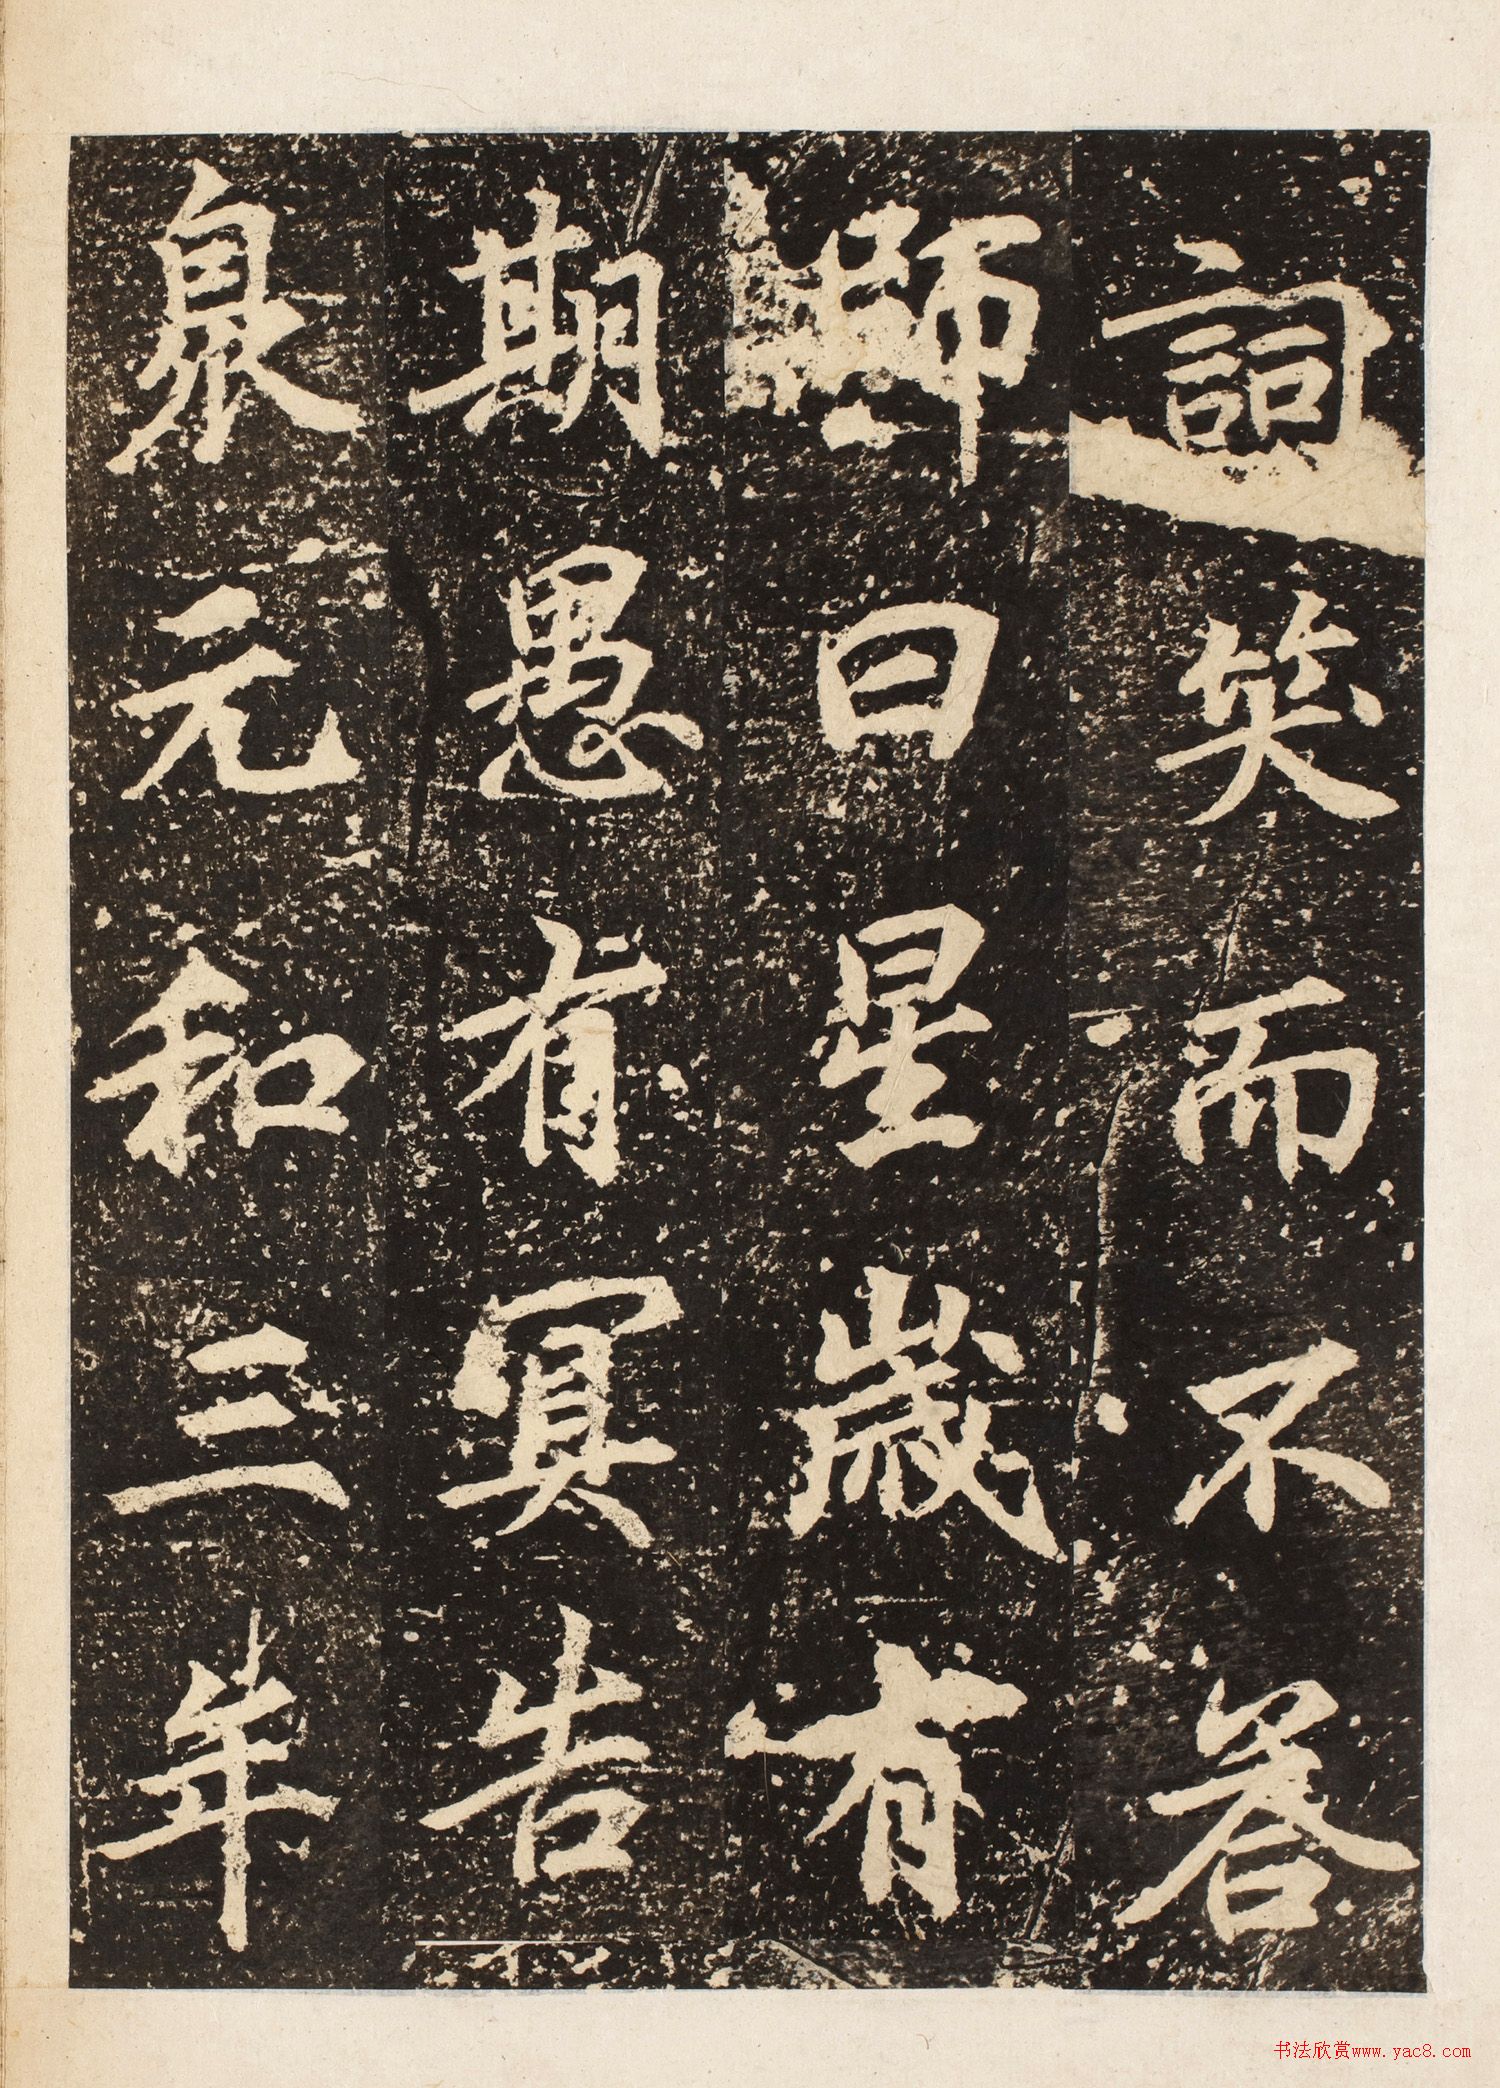 詞笑而不答
師曰星歲有
期愚有冥告
泉元和三年
书法欣赏www.yac8.com